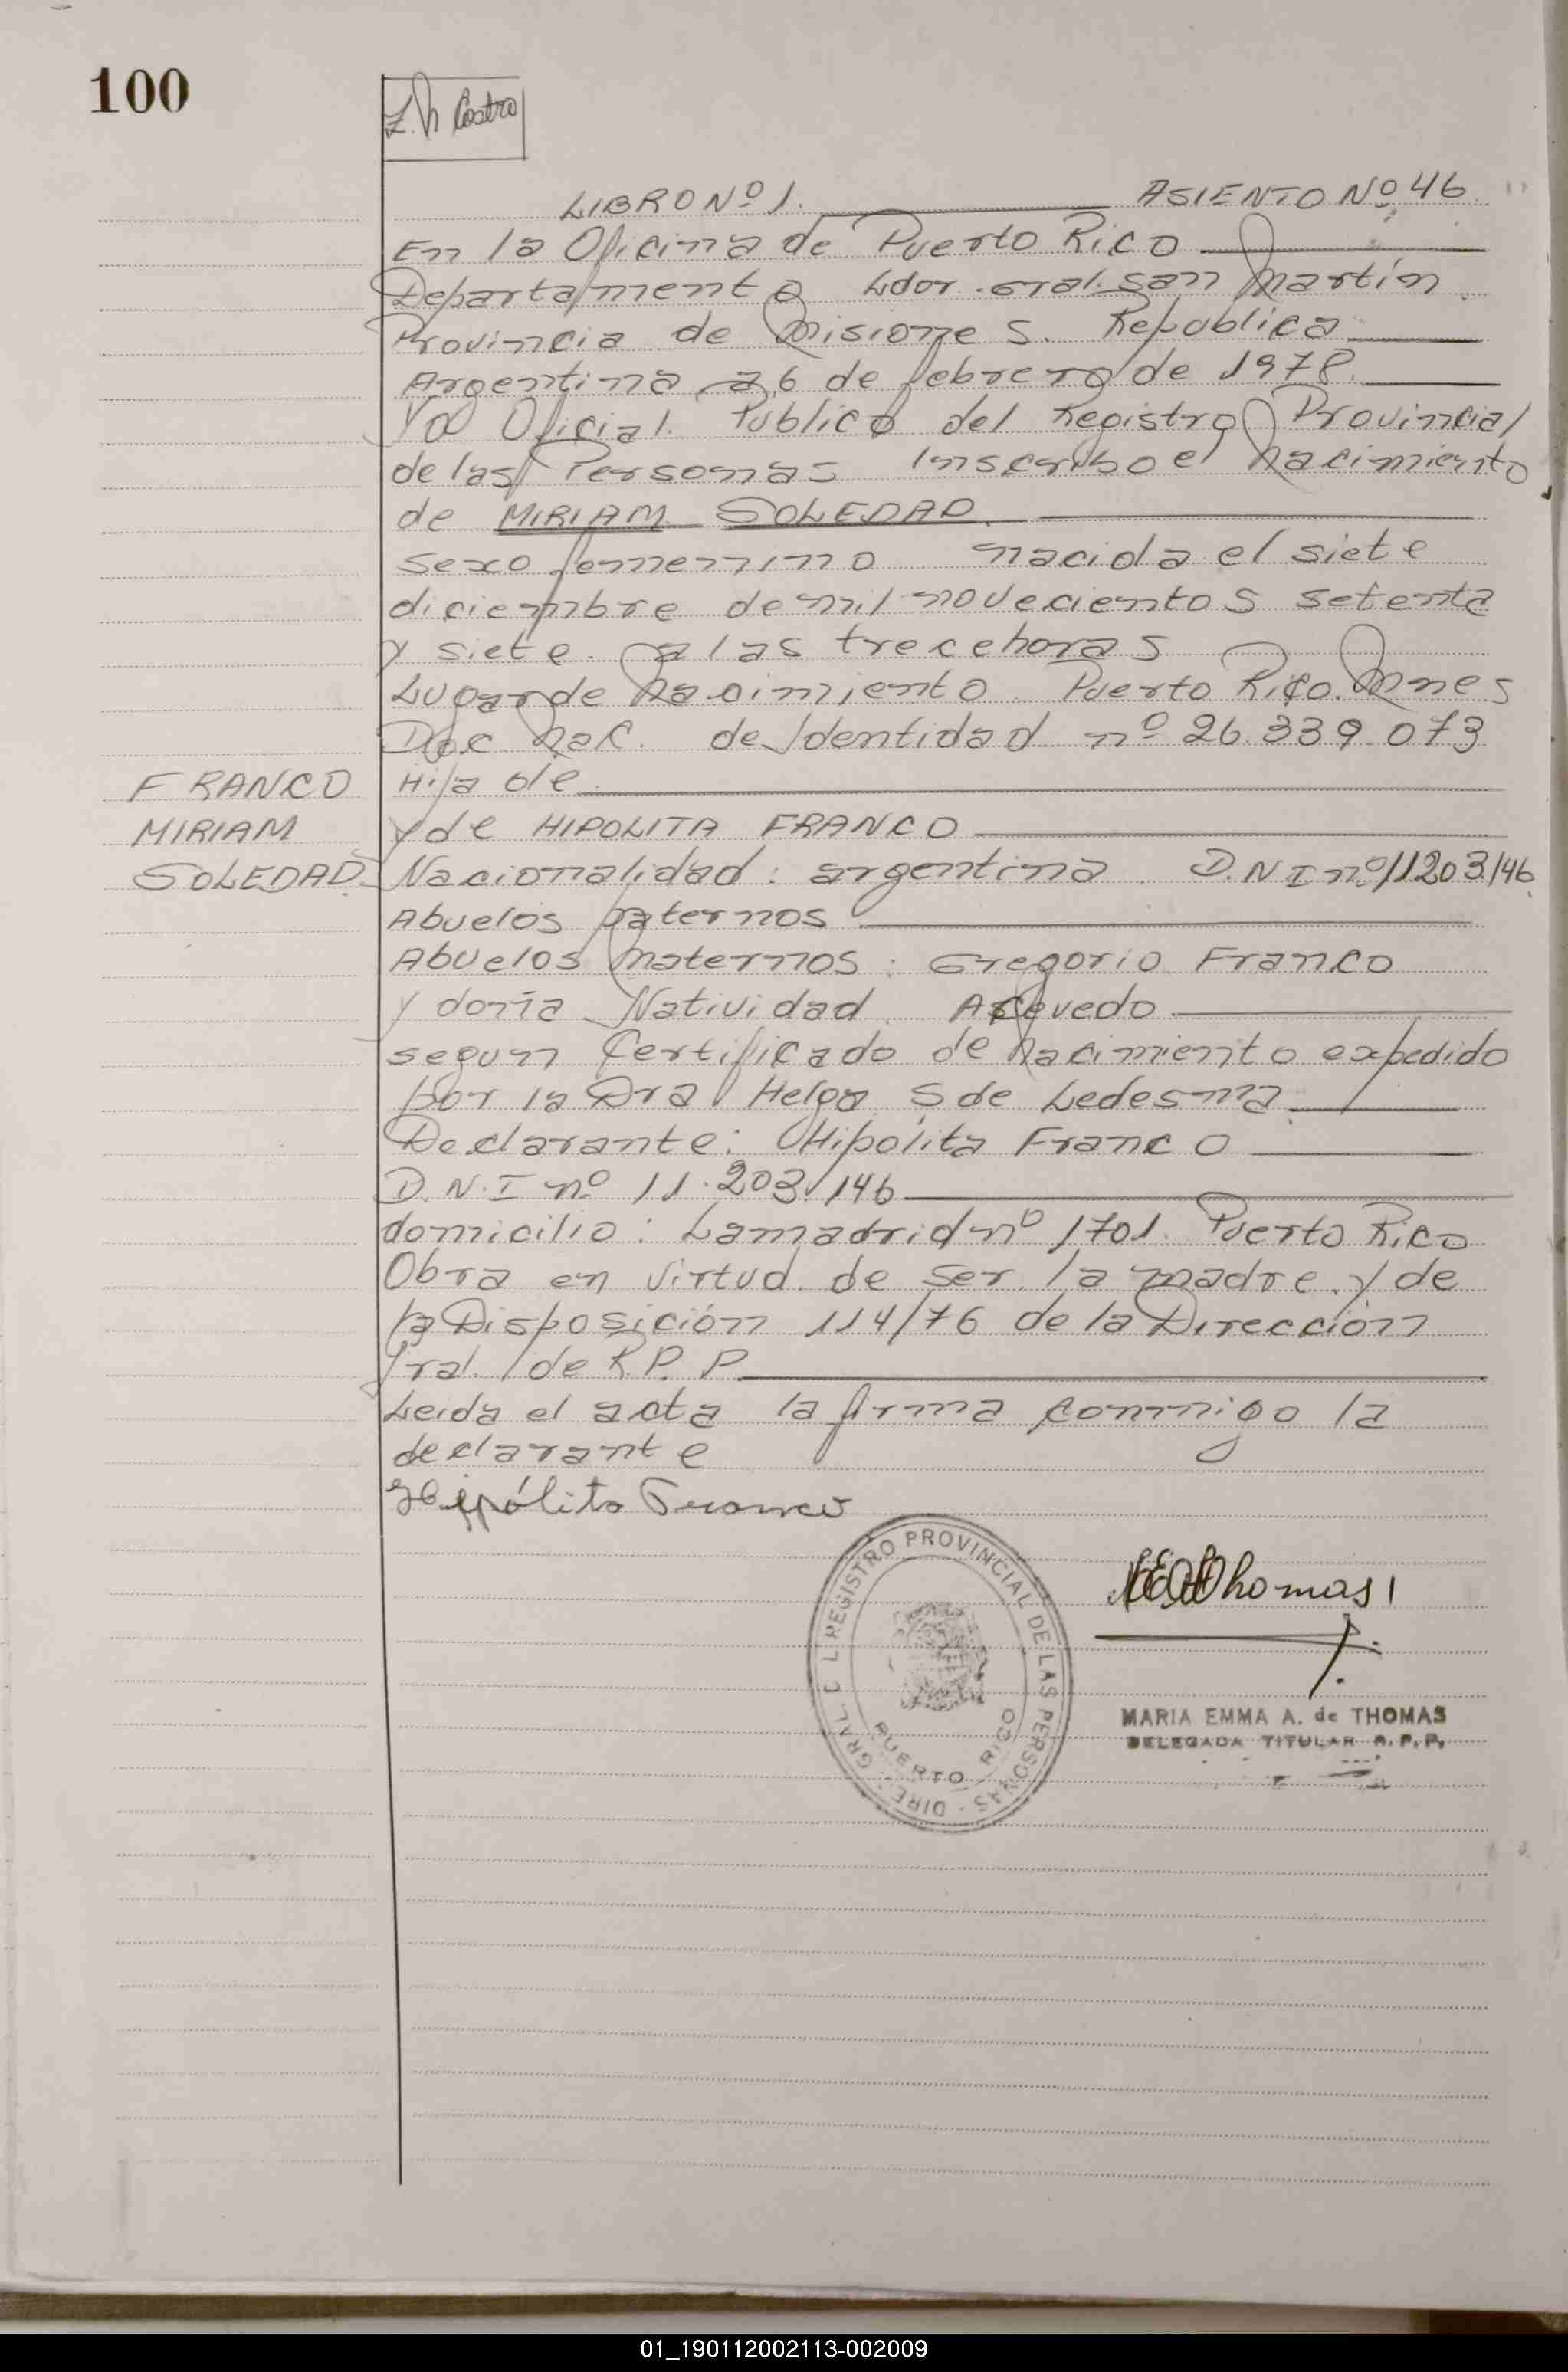 100
Z. N Castro
LIBRO Nº 1. ASIENTO Nº 46
En la Oficina de Puerto Rico
Departamento Ldor. Gral. San Martín.
Provincia de Misiones. Republica
Argentina a 6 de febrero de 1978.
Yo Oficial Publico del Registro Provincial
de las Personas Inscribo el Nacimiento
de MIRIAM SOLEDAD.
sexo femenino nacida el siete
diciembre de mil novecientos setenta
y siete. a las trece horas
Lugar de Nacimiento. Puerto Rico. Mnes
Doc Nac. de Identidad nº 26.339.073
FRANCO Hija de
MIRIAM y de HIPOLITA FRANCO
SOLEDAD. Nacionalidad: argentina. D.N.I nº 11203146
Abuelos paternos
Abuelos Maternos: Gregorio Franco
y doña Natividad Acevedo
segun Certificado de Nacimiento expedido
por la Dra Helga S de Ledesma.
Declarante: Hipólita Franco
D.N.I nº 11.203.146
domicilio: Lamadrid nº 1701. Puerto Rico
Obra en virtud de ser la madre. y de
la Disposición 114/76 de la Dirección
Gral. de R.P.P
Leida el acta la firma conmigo la
declarante
Hipólita Franco
DIRE. GRAL. DEL REGISTRO PROVINCIAL DE LAS PERSONAS
PUERTO RICO
Thomas
MARIA EMMA A. de THOMAS
DELEGADA TITULAR R.P.P.
01_190112002113-002009